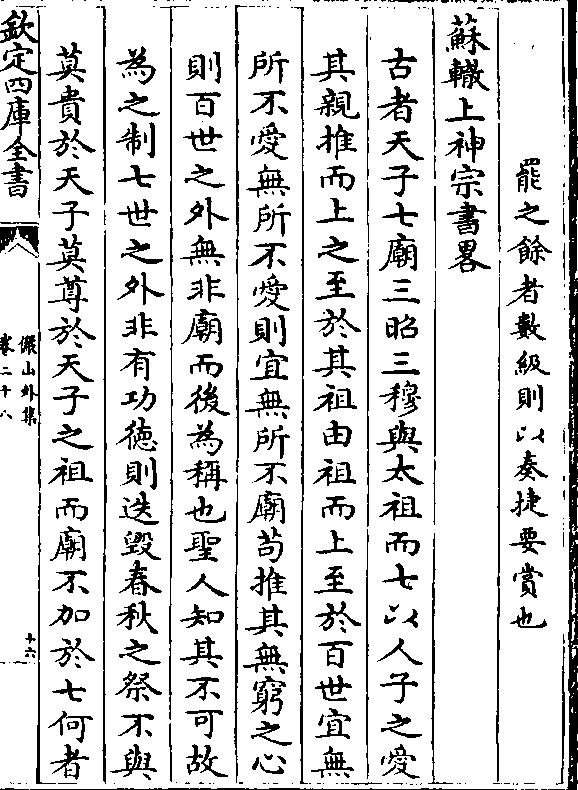 罷之餘者數級則以奏捷要賞也
蘇轍上神宗書畧
古者天子七廟三昭三穆與太祖而七以人子之愛
其親推而上之至於其祖由祖而上至於百世宜無
所不愛無所不愛則宜無所不廟苟推其無窮之心
則百世之外無非廟而後為稱也聖人知其不可故
為之制七世之外非有功徳則迭毁春秋之祭不與
莫貴於天子莫尊於天子之祖而廟不加於七何者
欽定四庫全書
儼山外集
卷二十八
十六